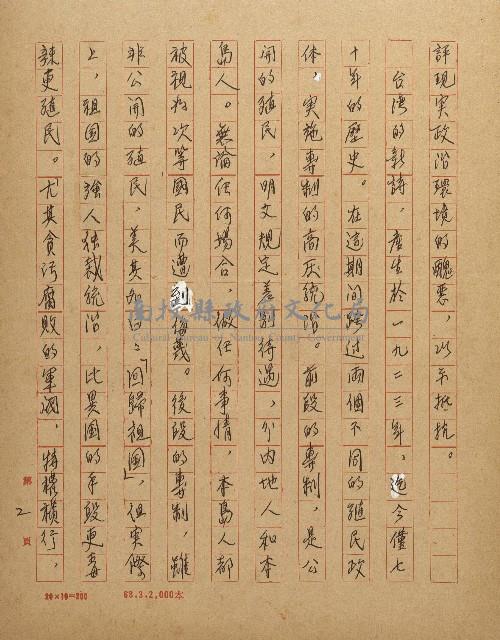 評現实政治環境的醜恶，以示抵抗。
台湾的新詩，產生於一九二三年，迄今僅七
十年的歷史。在這期间跨过両個不同的殖民政
体，实施專制的高圧統治。前段的專制，是公
開的殖民，明文規定差別待遇，分内地人和本
島人。無論任何場合，做任何事情，本島人都
被視為次等國民而遭到侮蔑。後段的專制，雖
非公開的殖民，美其名曰之「回歸祖國」，但实際
上，祖国的強人独裁統治，比異国的手段更毒
辣更殖民。尤其貪污腐敗的軍閥，特權横行，
第2頁
20×10=200 68.3.2,000本
南投縣政府文化局
Cultural Bureau of Nantou County Government